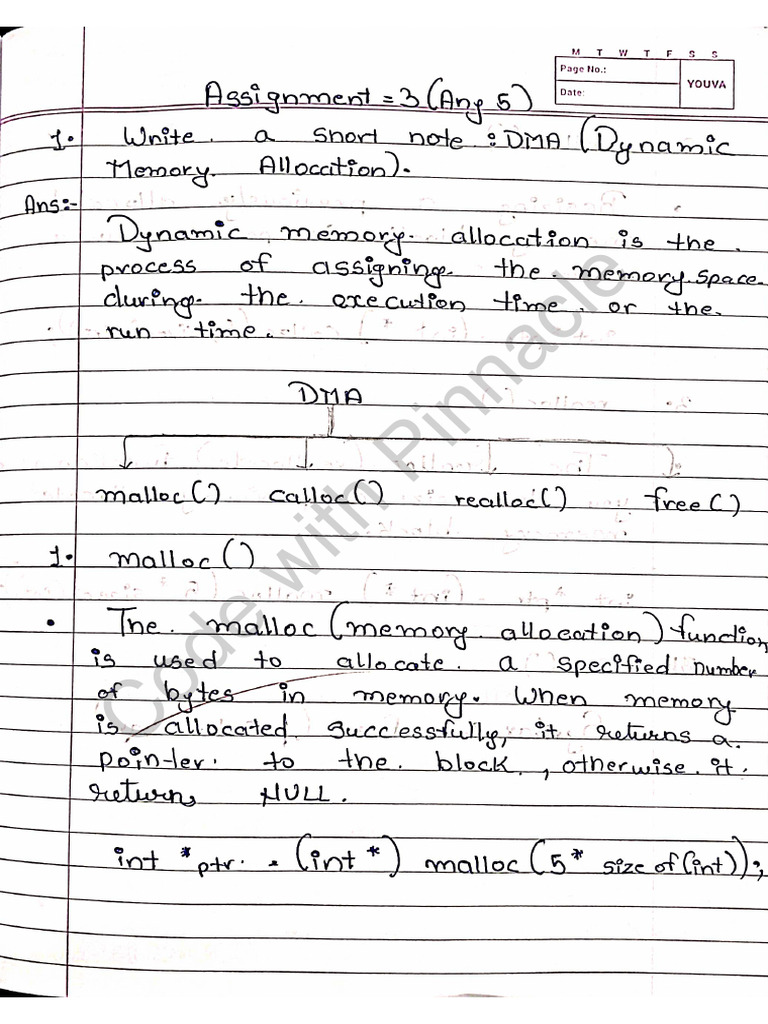 M T W T F S S
Page No.:
Date:
YOUVA
Assignment = 3 (Any 5)
1. Write a short note : DMA (Dynamic
Memory Allocation).
Ans:-
Dynamic memory allocation is the
process of assigning the memory space
during the execution time or the
run time.
DMA
malloc() calloc() realloc() free()
1. malloc()
• The malloc (memory allocation) function
is used to allocate a specified number
of bytes in memory. When memory
is allocated successfully, it returns a
pointer to the block, otherwise it
returns NULL.
int *ptr = (int *) malloc (5 * size of (int));
Code with Pinnacle